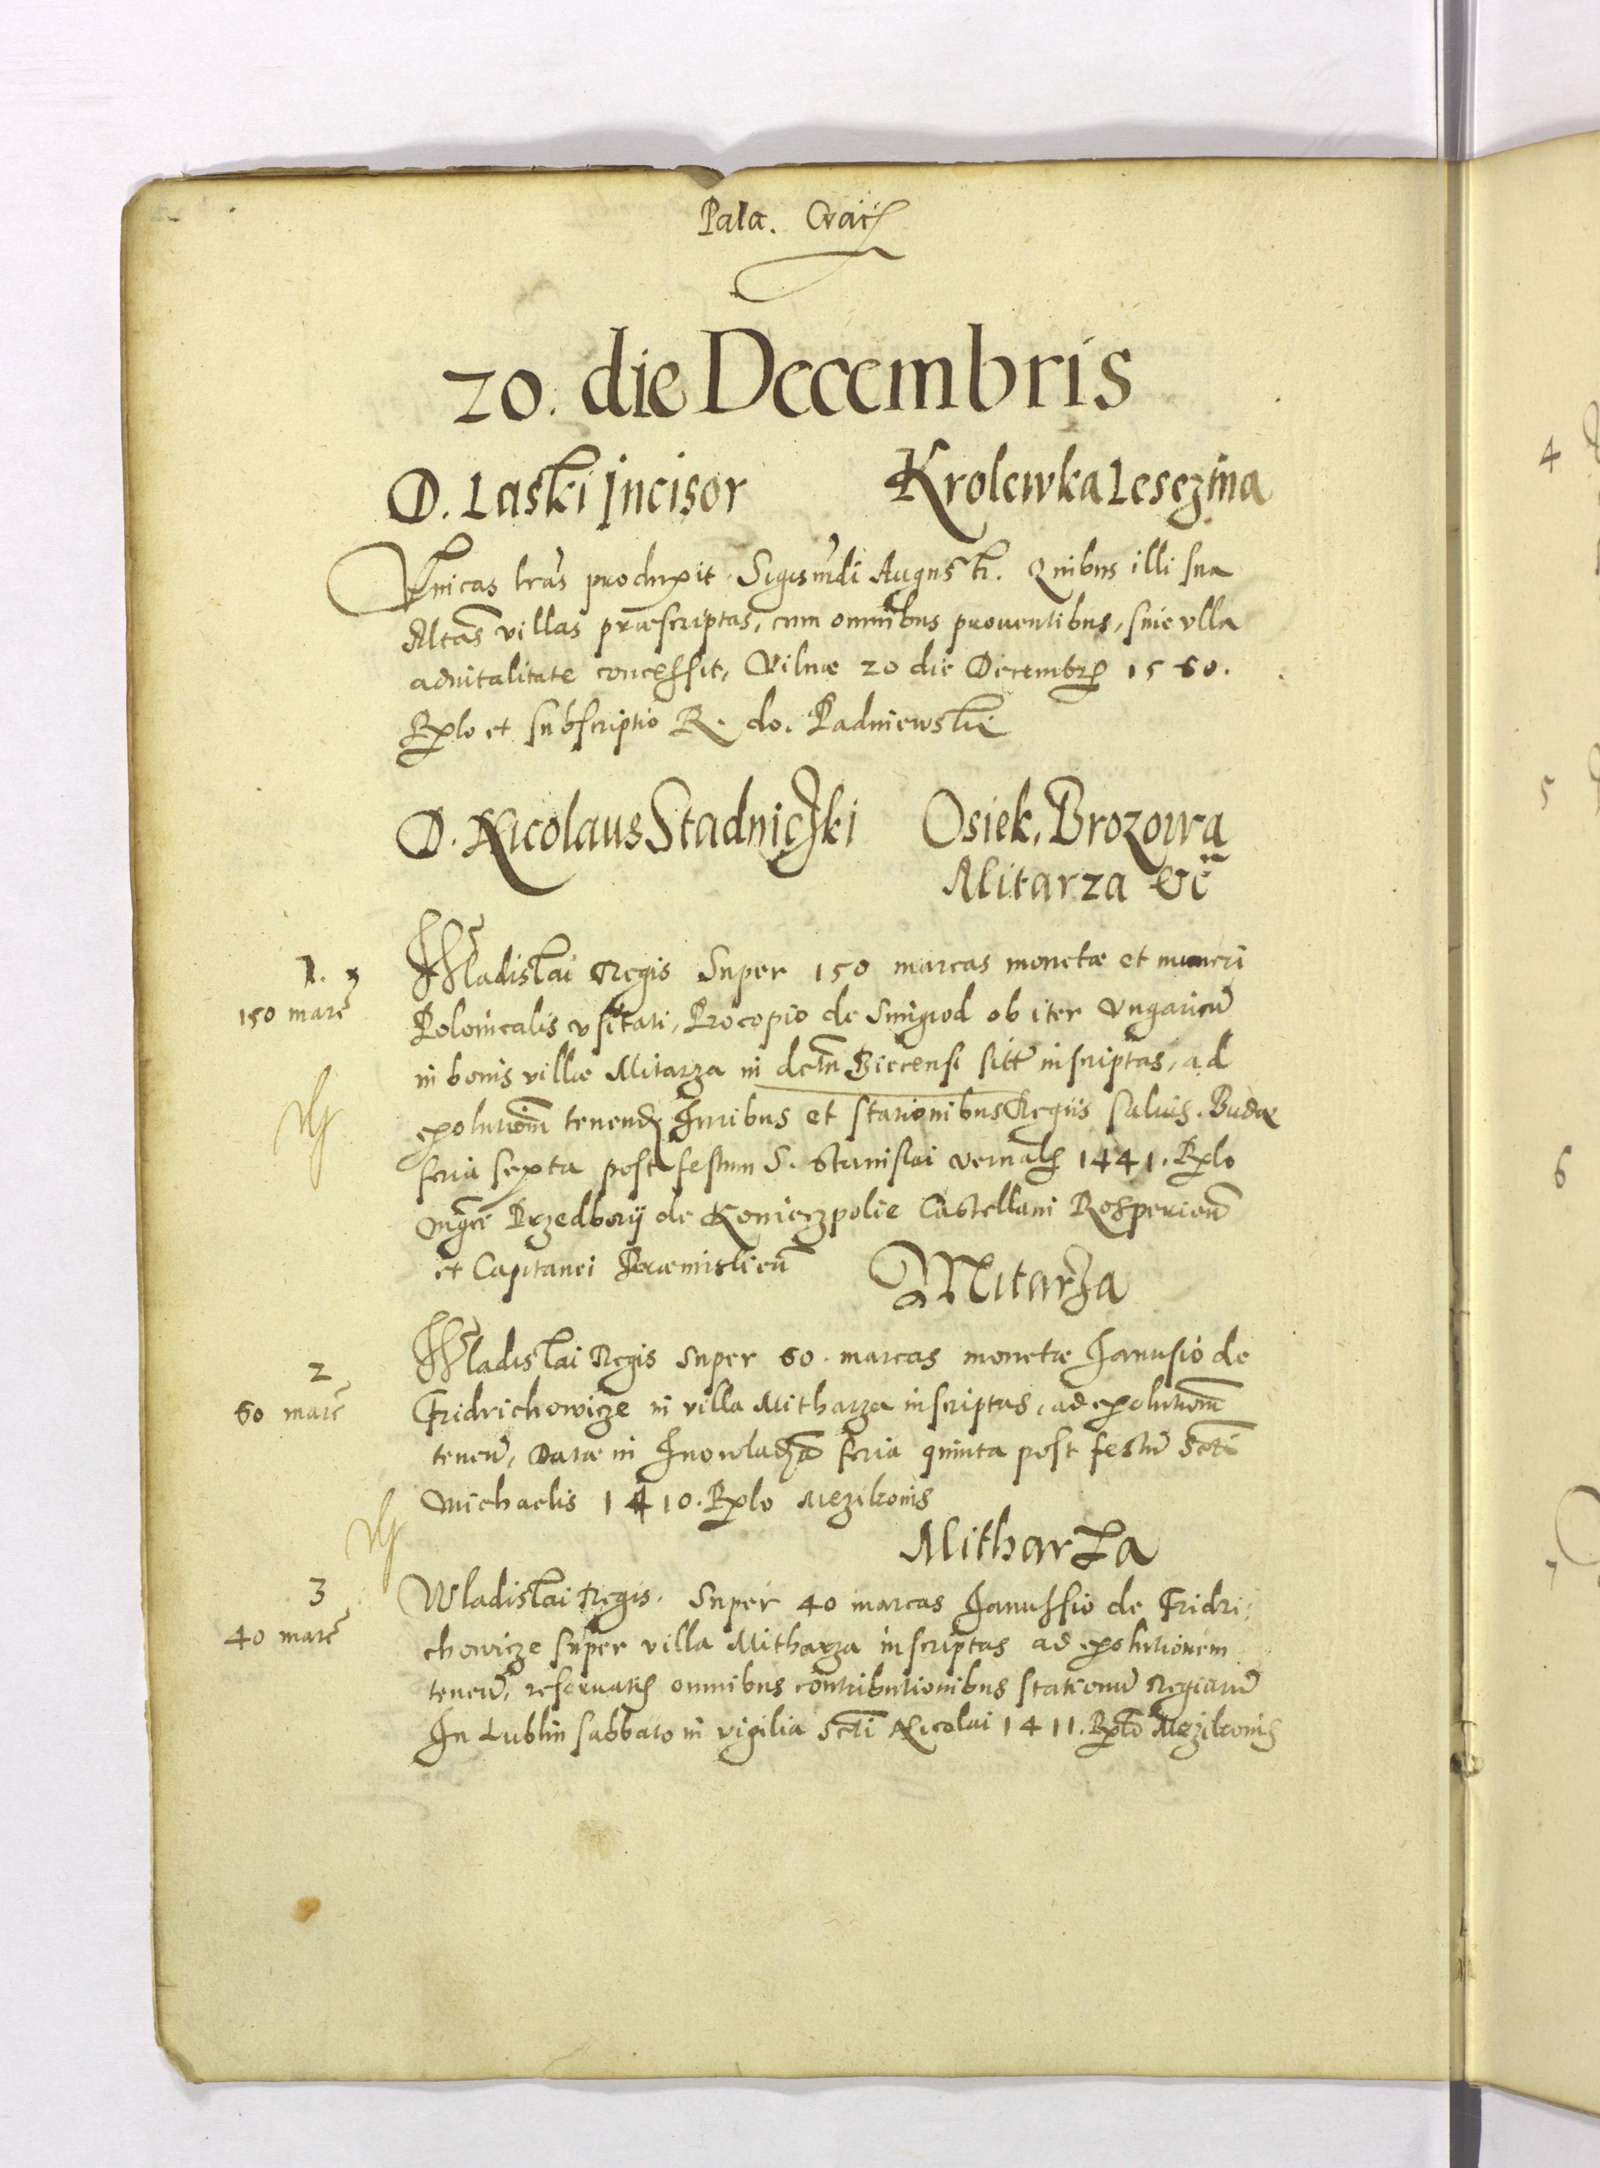 Pala. Crac
20. die Decembris
D. Laski Incisor Krolewka Lesczina
Vnicas lras produxit Sigismdi Augusti. Quibus illi sua
Mtas villas præscriptas, cum omnibus prouentibus, sine vlla
aduitalitate concessit, Vilnæ 20 die Decembr 1560.
Rlo et subscriptio R. do. Padniewski
D. Nicolaus Stadniczki Osiek, Brozowa
Mitarza Etc
1. Wladislai Regis super 150 marcas monetæ et numeri
150 marc Polonicalis vsitati, Procopio de Smigrod ob iter Vngaricu
in bonis villæ Mitarza in dctu Biecensi sitte inscriptas, ad
exolutionem tenend Iuribus et stationibus Regiis saluis. Budæ
feria sexta post festum S. Stanislai vernalis 1441. Rlo
Mgci Przedborij de Konieczpolie Castellani Rosperien
et Capitanei Præmislien Mitarza
2 Wladislai Regis super 60. marcas monetæ Ianusio de
60 marc Fridrichowicze in villa Mitharza inscriptas, ad exolutionem
tenen, Datæ in Inowladza feria quinta post festu Scti
Michaelis 1410. Rlo Mezikonis
Mitharza
3 Wladislai Regis. Super 40 marcas Ianussio de Fridri:
40 marc chowicze super villa Mitharza inscriptas ad exolutionem
tenen, reseruatis omnibus contributionibus stationu Regiaru
In Lublin sabbato in vigilia Scti Nicolai 1411. Rlo Mezikonis
4
5
6
7